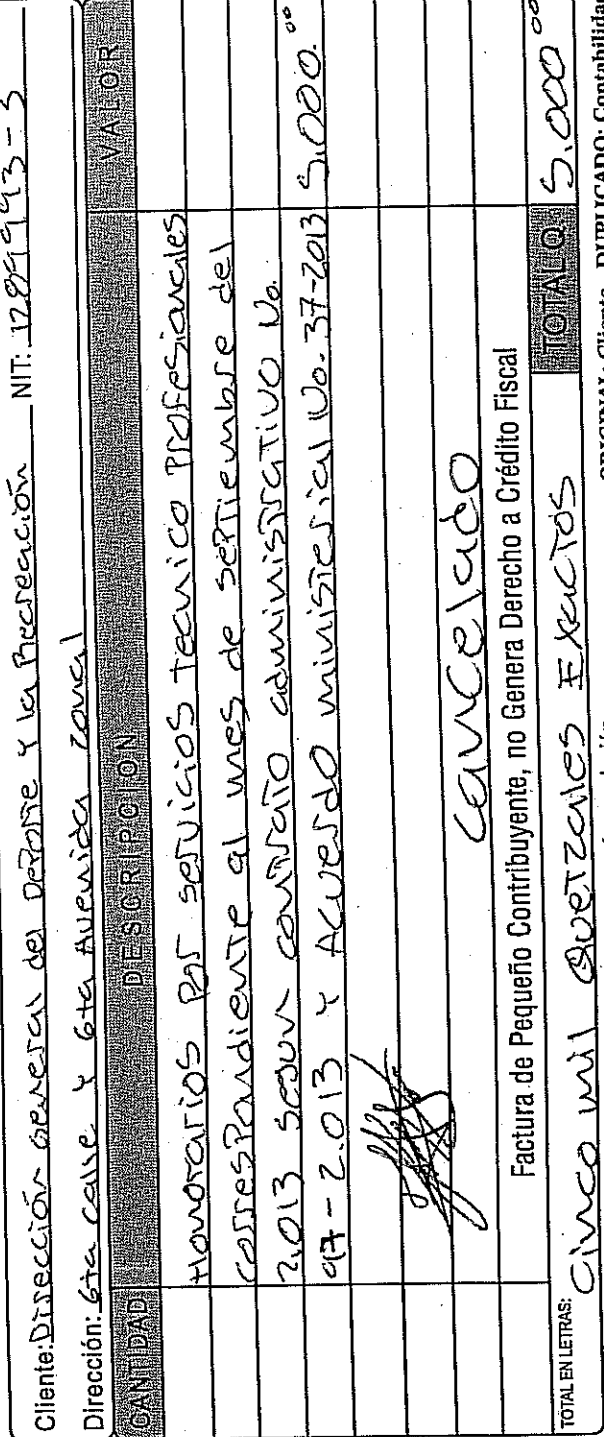 Cliente: Dirección general del Deporte y la Recreación NIT: 1289993-3
Dirección: 6ta calle y 6ta Avenida zona1
CANTIDAD DESCRIPCION VALOR
Honorarios por servicios tecnico profesionales
correspondiente al mes de septiembre del
2,013 segun contrato administrativo No.
97-2.013 y Acuerdo ministerial No. 37-2013 5,000.00
cancelado
Factura de Pequeño Contribuyente, no Genera Derecho a Crédito Fiscal
TOTAL EN LETRAS: Cinco mil Quetzales Exactos TOTAL Q. 5,000 00
ORIGINAL: Cliente DUPLICADO: Contabilidad